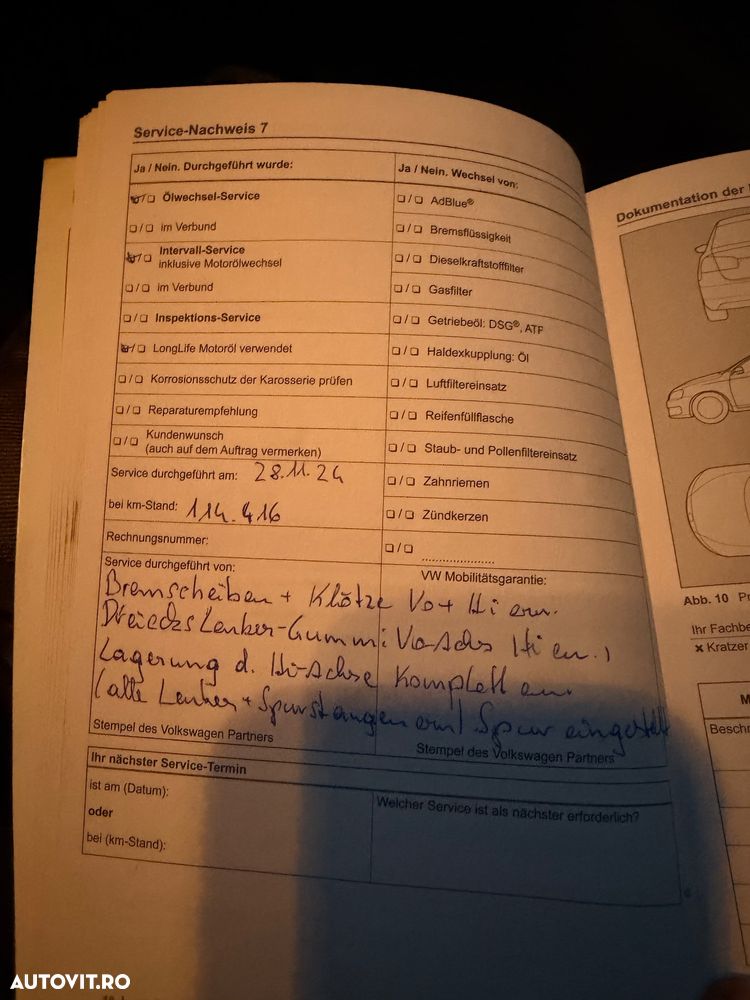 Service-Nachweis 7
Ja / Nein. Durchgeführt wurde:
Ölwechsel-Service
im Verbund
Intervall-Service
inklusive Motorölwechsel
im Verbund
Inspektions-Service
LongLife Motoröl verwendet
Korrosionsschutz der Karosserie prüfen
Reparaturempfehlung
Kundenwunsch
(auch auf dem Auftrag vermerken)
Service durchgeführt am: 28.11.24
bei km-Stand: 114.416
Rechnungsnummer:
Service durchgeführt von:
Ja / Nein. Wechsel von:
AdBlue®
Bremsflüssigkeit
Dieselkraftstofffilter
Gasfilter
Getriebeöl: DSG®, ATF
Haldexkupplung: Öl
Luftfiltereinsatz
Reifenfüllflasche
Staub- und Pollenfiltereinsatz
Zahnriemen
Zündkerzen
VW Mobilitätsgarantie:
Bremscheiben + Klötze Vo + Hi ern.
Dreiecks Lenker-Gummi Hi
Lagerung d. Hi-Achse Komplett
(alle Lenker + Spurstangen ern) Spur eingestellt
Stempel des Volkswagen Partners
Stempel des Volkswagen Partners
Ihr nächster Service-Termin
ist am (Datum):
oder
bei (km-Stand):
Welcher Service ist als nächster erforderlich?
Dokumentation der
Abb. 10
Ihr Fachbe
× Kratzer
M
Beschr
AUTOVIT.RO